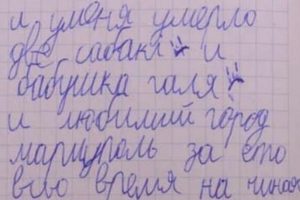 и уменя умерло
две сабаки и
бабушка галя
и любимий город
мариуполь за ето
всю время на чиная